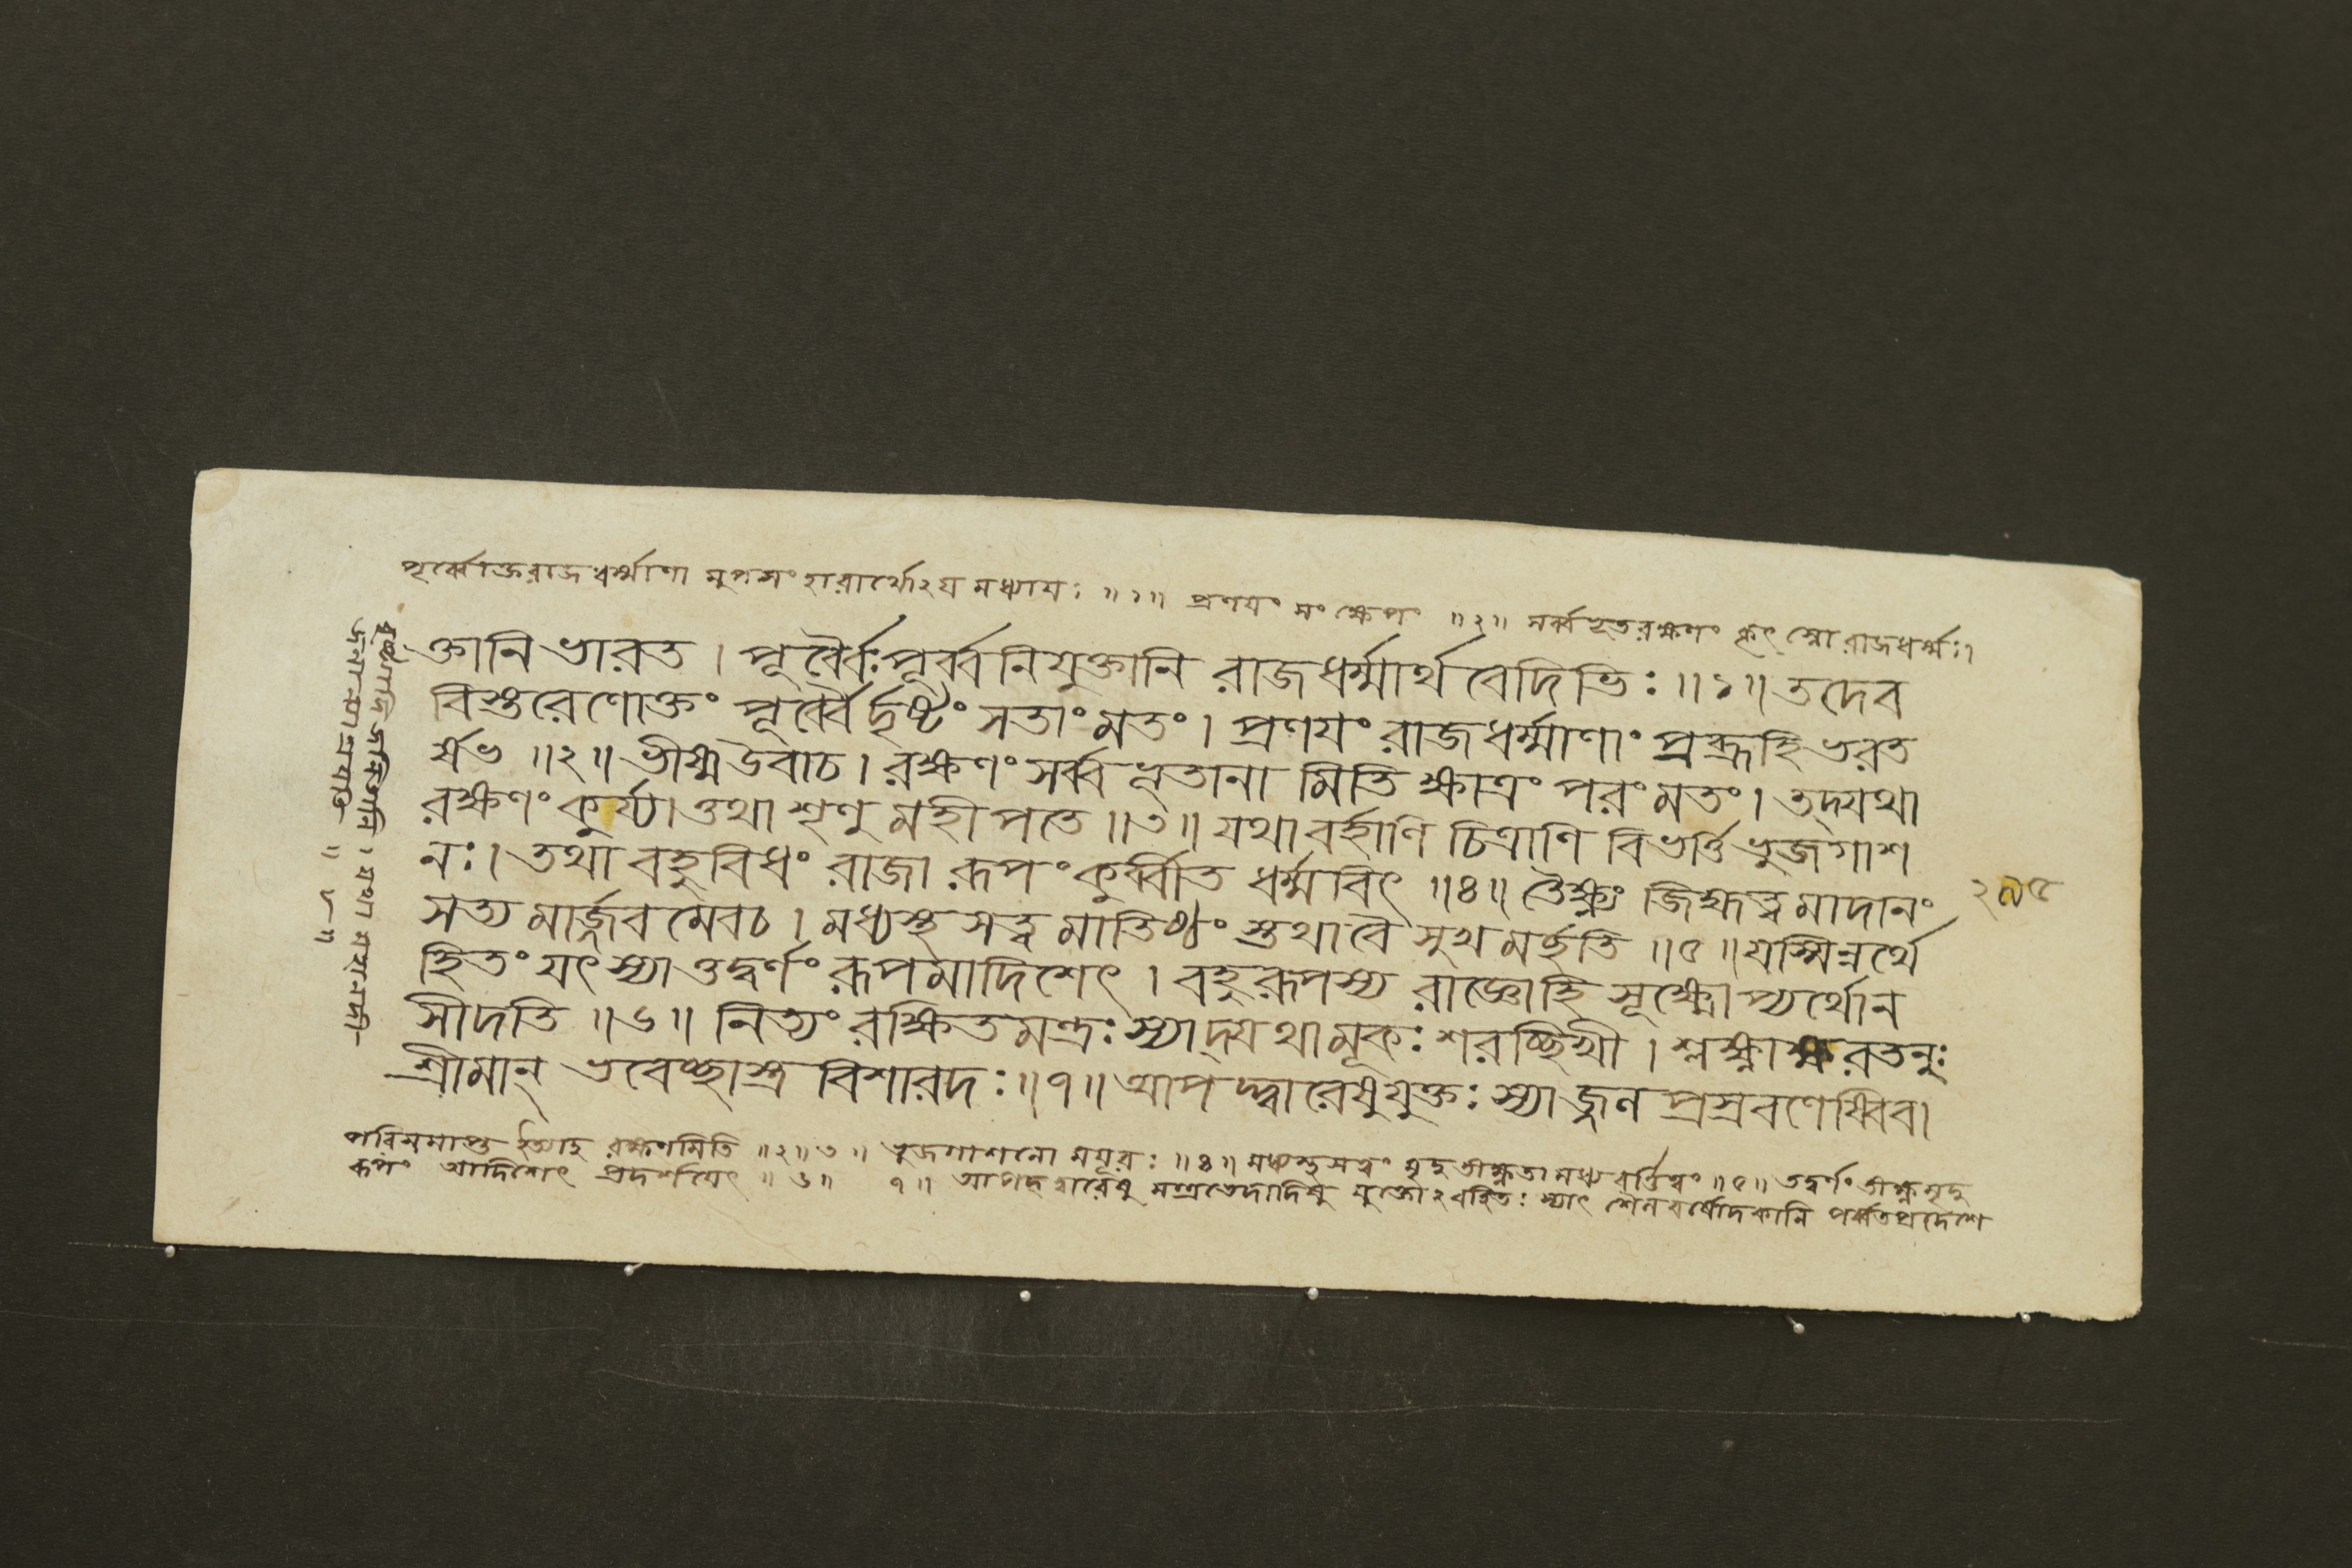 পূর্ব্বোক্তরাজধর্ম্মাণা মুপসংহারার্থোঽয মধ্যাযঃ ॥১॥ প্রণযং সংক্ষেপং ॥২॥ সর্ব্বভূতরক্ষণং কৃৎস্নোরাজধর্ম্মঃ।
ক্তানি ভারত । পূর্ব্বৈঃ পূর্ব্ব নিযুক্তানি রাজধর্ম্মার্থ বেদিভিঃ ॥১॥ তদেব
বিস্তরেণোক্তং পূর্ব্বৈর্দৃষ্টং সতাং মতং। প্রণযং রাজধর্ম্মাণাং প্রব্রূহি ভরত
র্ষভ ॥২॥ ভীষ্ম উবাচ । রক্ষণং সর্ব্ব ভূতানা মিতি ক্ষাত্রং পরং মতং। তদ্যথা
রক্ষণং কুর্য্যাত্তথা শৃণু মহীপতে ॥৩॥ যথা বর্হাণি চিত্রাণি বিভর্ত্তি ভুজগাশ
নঃ। তথা বহুবিধং রাজা রূপং কুর্ব্বীত ধর্ম্মবিৎ ॥৪॥ তৈক্ষ্ণ্যং জিহ্মত্ব মাদানং
২৯৫
সত্য মার্জ্জব মেবচ । মধ্যস্থ সত্ত্ব মাতিষ্ঠং স্তথাবৈ সুখ মর্হতি ॥৫॥ যস্মিন্নর্থে
হিতং যৎ স্যাত্তদ্বর্ণং রূপমাদিশেৎ । বহুরূপস্য রাজ্ঞোহি সূক্ষ্মোপ্যর্থোন
সীদতি ॥৬॥ নিত্যং রক্ষিতমন্ত্রঃ স্যাদ্যথামূকঃ শরচ্ছিখী । শ্লক্ষ্ণাক্ষরতনুঃ
শ্রীমান্ ভবেচ্ছাস্ত্র বিশারদঃ ॥৭॥ আপদ্দ্বারেষুযুক্তঃ স্যাজ্জল প্রস্রবণেষ্বিব।
পরিসমাপ্ত ইত্যাহ রক্ষণমিতি ॥২॥৩॥ ভুজগাশনো মযূরঃ ॥৪॥ মধ্যস্থসত্ত্বং মৃদুতীক্ষ্ণতা মধ্যবর্ত্তিত্বং ॥৫॥ তদ্বর্ণং তীক্ষ্ণমৃদু
রূপং আদিশেৎ প্রদর্শযেৎ ॥৬॥ ৭॥ আপদ্দ্বারেষু মন্ত্রভেদাদিষু যুক্তোঽবহিতঃ স্যাৎ শৈলবর্ষোদকানি পর্ব্বতপ্রদেশে